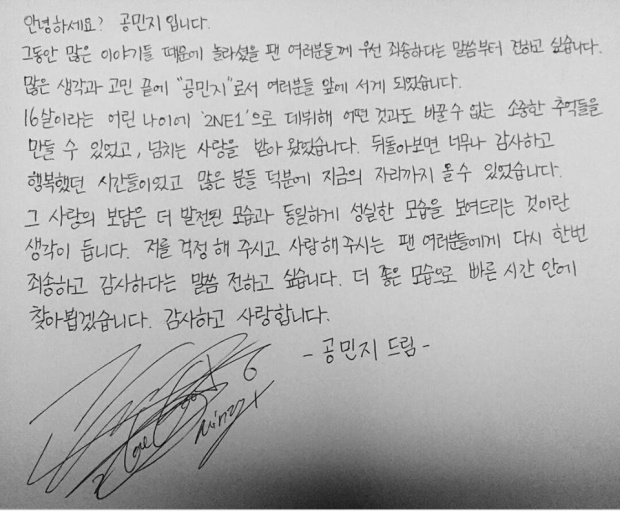 안녕하세요? 공민지입니다.
그동안 많은 이야기들 때문에 놀라셨을 팬 여러분들께 우선 죄송하다는 말씀부터 전하고 싶습니다.
많은 생각과 고민 끝에 "공민지"로서 여러분들 앞에 서게 되었습니다.
16살이라는 어린 나이에 '2NE1'으로 데뷔해 어떤 것과도 바꿀 수 없는 소중한 추억들을
만들 수 있었고, 넘치는 사랑을 받아 왔었습니다. 뒤돌아보면 너무나 감사하고
행복했던 시간들이었고 많은 분들 덕분에 지금의 자리까지 올 수 있었습니다.
그 사랑의 보답은 더 발전된 모습과 동일하게 성실한 모습을 보여드리는 것이란
생각이 듭니다. 저를 걱정해 주시고 사랑해 주시는 팬 여러분들에게 다시 한번
죄송하고 감사하다는 말씀 전하고 싶습니다. 더 좋은 모습으로 빠른 시간 안에
찾아뵙겠습니다. 감사하고 사랑합니다.
- 공민지 드림 -